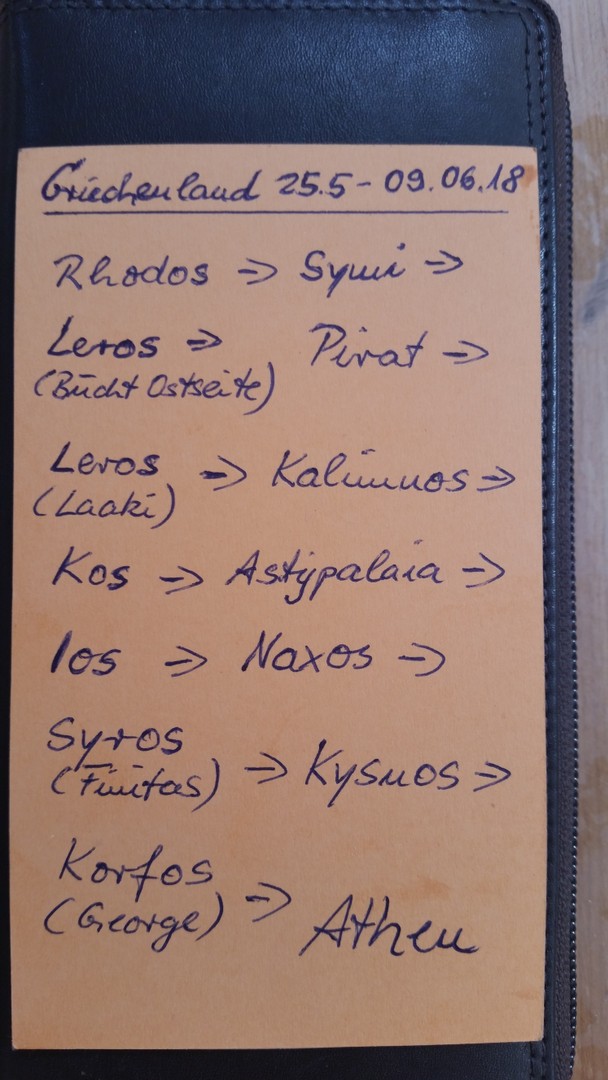 Griechenland 25.5 - 09.06.18
Rhodos → Symi →
Leros → Pirat →
(Bucht Ostseite)
Leros → Kalimnos →
(Laaki)
Kos → Astypalaia →
Ios → Naxos →
Syros
(Finitas) → Kysnos →
Korfos
(George) → Athen